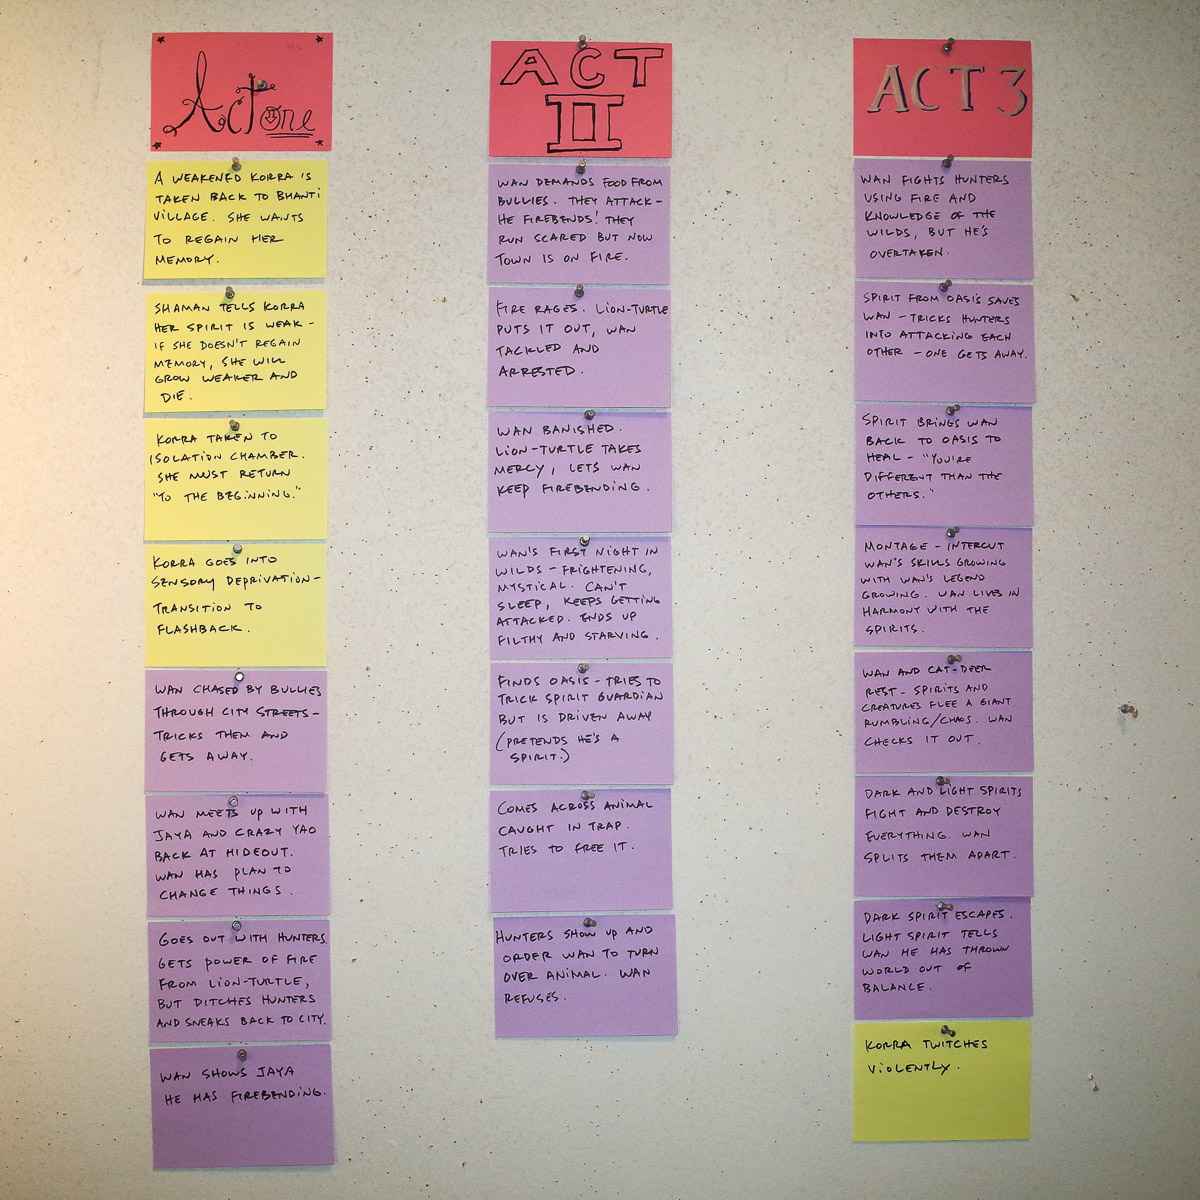 Act One
A WEAKENED KORRA IS
TAKEN BACK TO BHANTI
VILLAGE. SHE WANTS
TO REGAIN HER
MEMORY.
SHAMAN TELLS KORRA
HER SPIRIT IS WEAK -
IF SHE DOESN'T REGAIN
MEMORY, SHE WILL
GROW WEAKER AND
DIE.
KORRA TAKEN TO
ISOLATION CHAMBER.
SHE MUST RETURN
"TO THE BEGINNING."
KORRA GOES INTO
SENSORY DEPRIVATION -
TRANSITION TO
FLASHBACK.
WAN CHASED BY BULLIES
THROUGH CITY STREETS -
TRICKS THEM AND
GETS AWAY.
WAN MEETS UP WITH
JAYA AND CRAZY YAO
BACK AT HIDEOUT.
WAN HAS PLAN TO
CHANGE THINGS.
GOES OUT WITH HUNTERS
GETS POWER OF FIRE
FROM LION-TURTLE,
BUT DITCHES HUNTERS
AND SNEAKS BACK TO CITY.
WAN SHOWS JAYA
HE HAS FIREBENDING.
ACT
II
WAN DEMANDS FOOD FROM
BULLIES. THEY ATTACK -
HE FIREBENDS! THEY
RUN SCARED BUT NOW
TOWN IS ON FIRE.
FIRE RAGES. LION-TURTLE
PUTS IT OUT, WAN
TACKLED AND
ARRESTED.
WAN BANISHED.
LION-TURTLE TAKES
MERCY, LETS WAN
KEEP FIREBENDING.
WAN'S FIRST NIGHT IN
WILDS - FRIGHTENING,
MYSTICAL. CAN'T
SLEEP, KEEPS GETTING
ATTACKED. ENDS UP
FILTHY AND STARVING.
FINDS OASIS - TRIES TO
TRICK SPIRIT GUARDIAN
BUT IS DRIVEN AWAY
(PRETENDS HE'S A
SPIRIT.)
COMES ACROSS ANIMAL
CAUGHT IN TRAP.
TRIES TO FREE IT.
HUNTERS SHOW UP AND
ORDER WAN TO TURN
OVER ANIMAL. WAN
REFUSES.
ACT 3
WAN FIGHTS HUNTERS
USING FIRE AND
KNOWLEDGE OF THE
WILDS, BUT HE'S
OVERTAKEN.
SPIRIT FROM OASIS SAVES
WAN - TRICKS HUNTERS
INTO ATTACKING EACH
OTHER - ONE GETS AWAY.
SPIRIT BRINGS WAN
BACK TO OASIS TO
HEAL - "YOU'RE
DIFFERENT THAN THE
OTHERS."
MONTAGE - INTERCUT
WAN'S SKILLS GROWING
WITH WAN'S LEGEND
GROWING. WAN LIVES IN
HARMONY WITH THE
SPIRITS.
WAN AND CAT-DEER
REST - SPIRITS AND
CREATURES FLEE A GIANT
RUMBLING/CHAOS. WAN
CHECKS IT OUT.
DARK AND LIGHT SPIRITS
FIGHT AND DESTROY
EVERYTHING. WAN
SPLITS THEM APART.
DARK SPIRIT ESCAPES.
LIGHT SPIRIT TELLS
WAN HE HAS THROWN
WORLD OUT OF
BALANCE.
KORRA TWITCHES
VIOLENTLY.